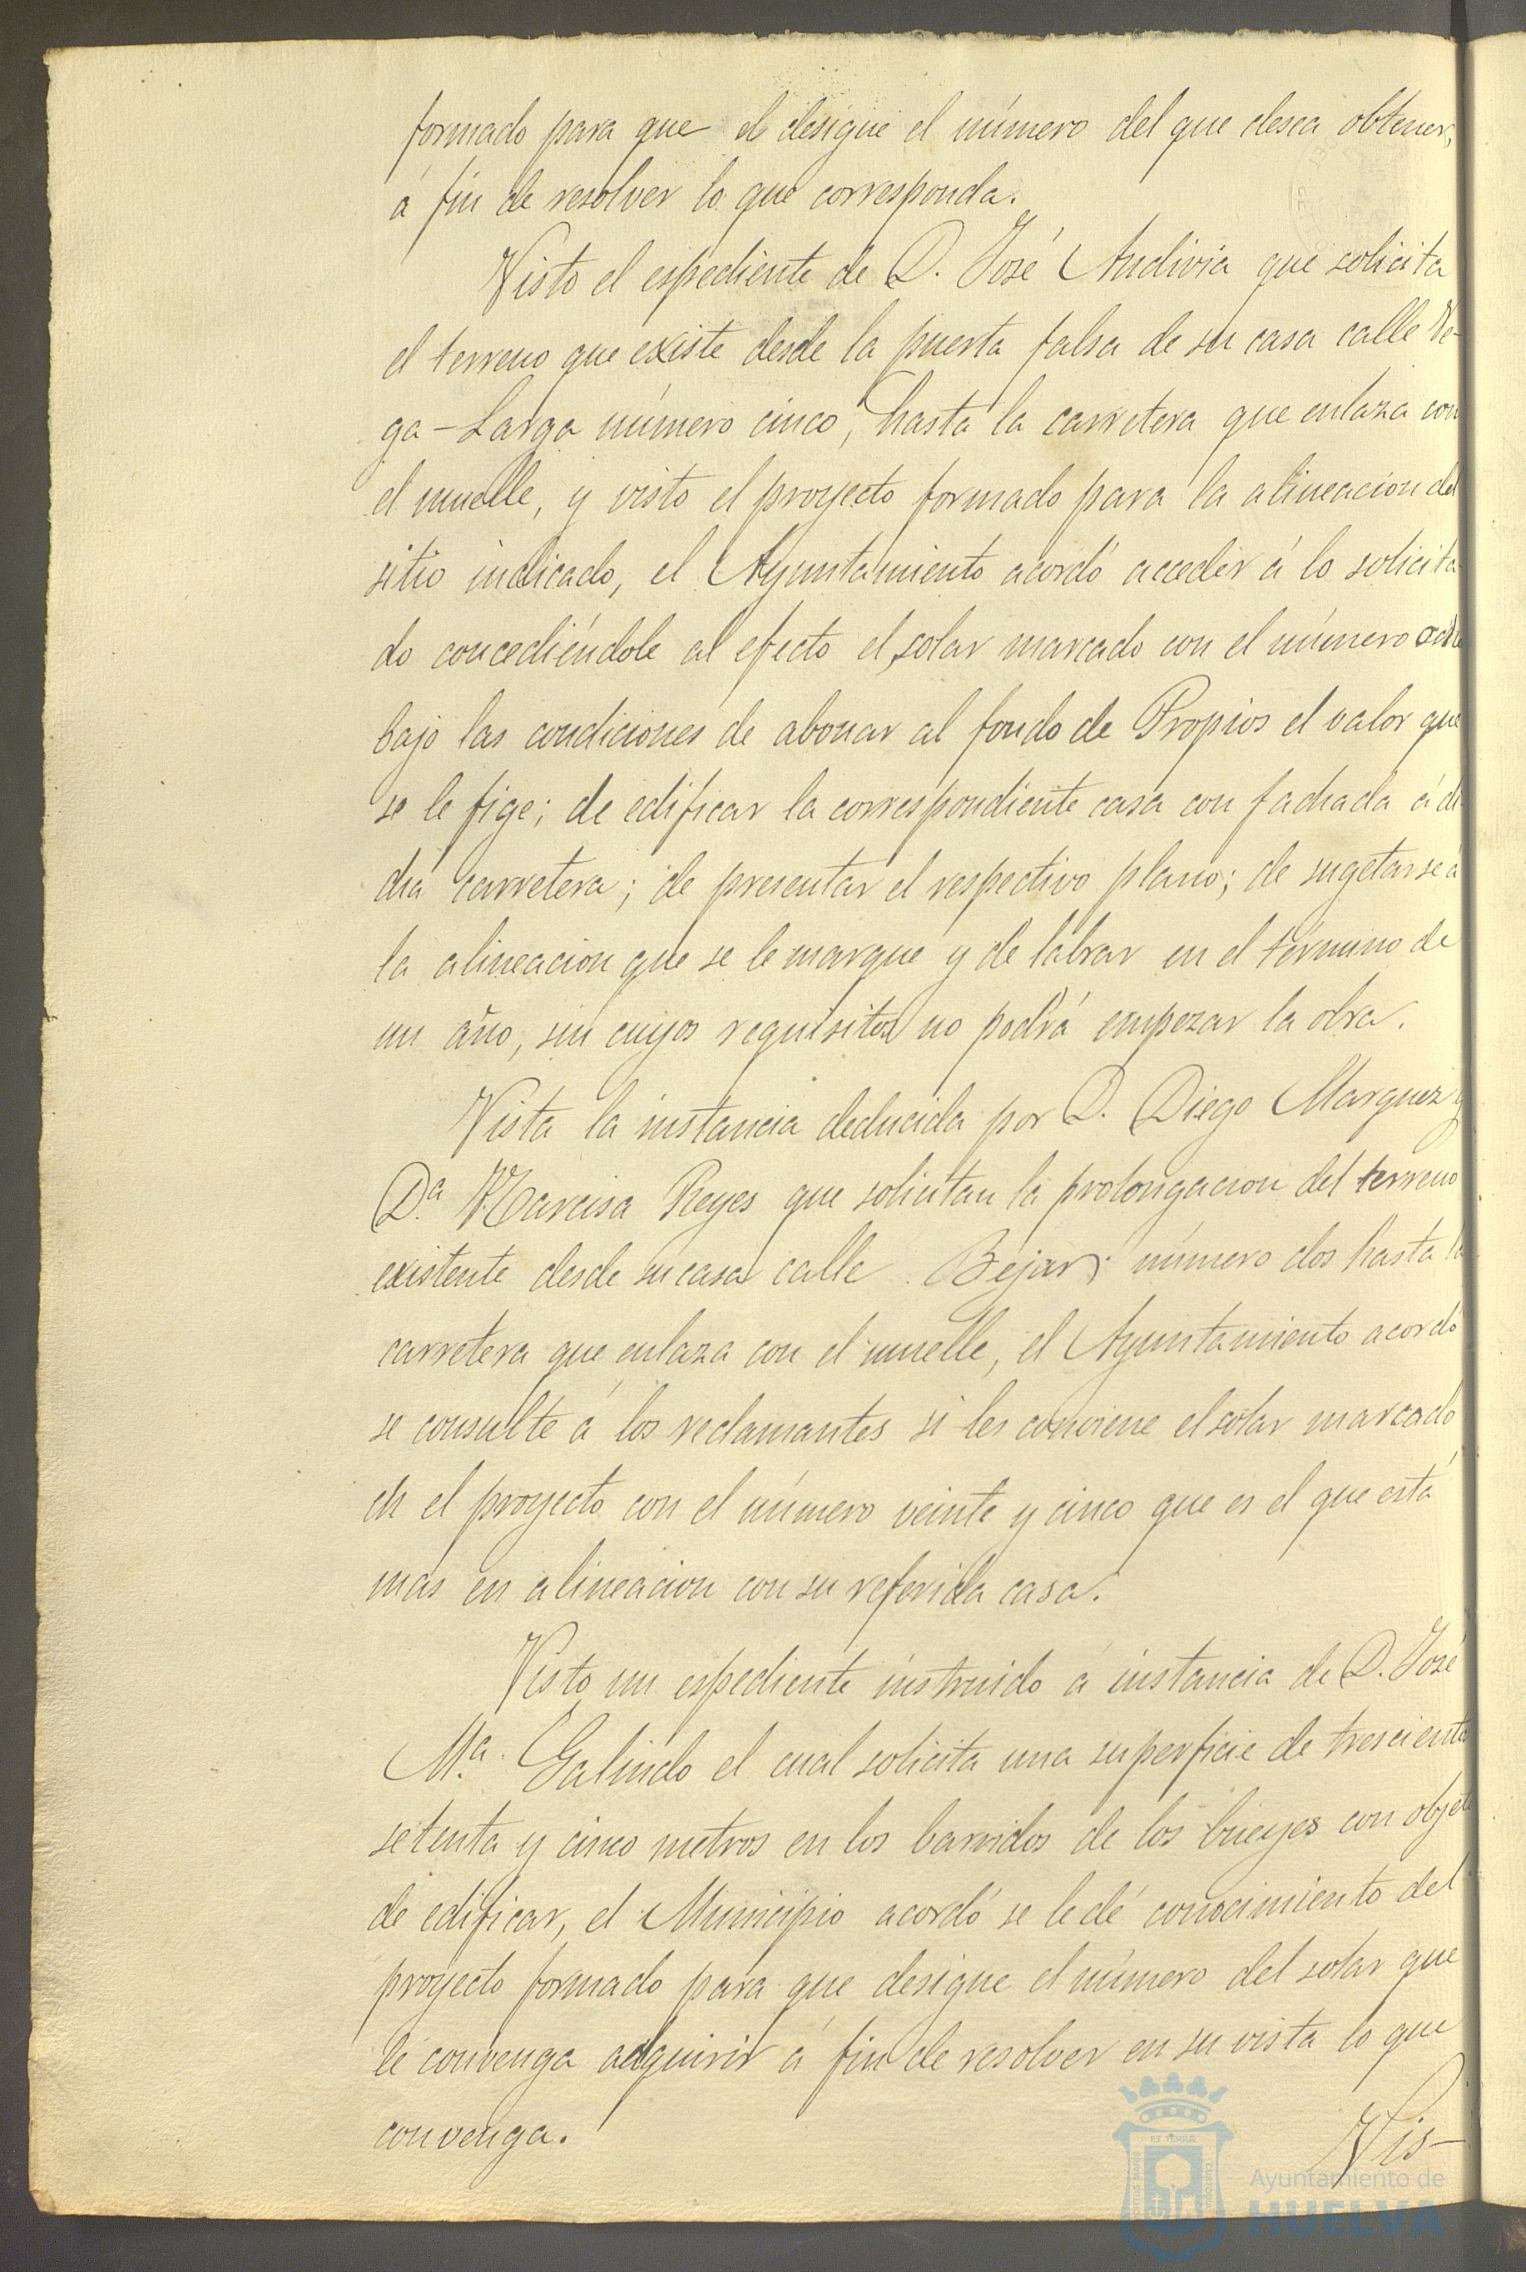 formado para que el designe el número del que desea obtener,
á fin de resolver lo que corresponda.
Visto el espediente de D. José Andivia que solicita
el terreno que existe desde la puerta falsa de su casa calle Ve-
ga-Larga número cinco, hasta la carretera que enlaza con
el muelle, y visto el proyecto formado para la alineacion del
sitio indicado, el Ayuntamiento acordó acceder á lo solicita
do concediéndole al efecto el solar marcado con el número ocho
bajo las condiciones de abonar al fondo de Propios el valor que
se le fige; de edificar la correspondiente casa con fachada á di
cha carretera; de presentar el respectivo plano; de sugetarse á
la alineacion que se le marque y de labrar en el término de
un año, sin cuyos requisitos no podrá empezar la obra.
Vista la instancia deducida por D. Diego Marquez y
Dª Narcisa Reyes que solicitan la prolongacion del terreno
existente desde su casa calle Bejar número dos hasta la
carretera que enlaza con el muelle, el Ayuntamiento acordó
se consulte á los reclamantes si les conviene el solar marcado
en el proyecto con el número veinte y cinco que es el que está
mas en alineacion con su referida casa.
Visto un espediente instruido á instancia de D. José
Mª. Galindo el cual solicita una superficie de trescientos
setenta y cinco metros en los barridos de los bueyes con objeto
de edificar, el Municipio acordó se le dé conocimiento del
proyecto formado para que designe el número del solar que
le convenga adquirir á fin de resolver en su vista lo que
convenga.
Vis-
Ayuntamiento de
HUELVA